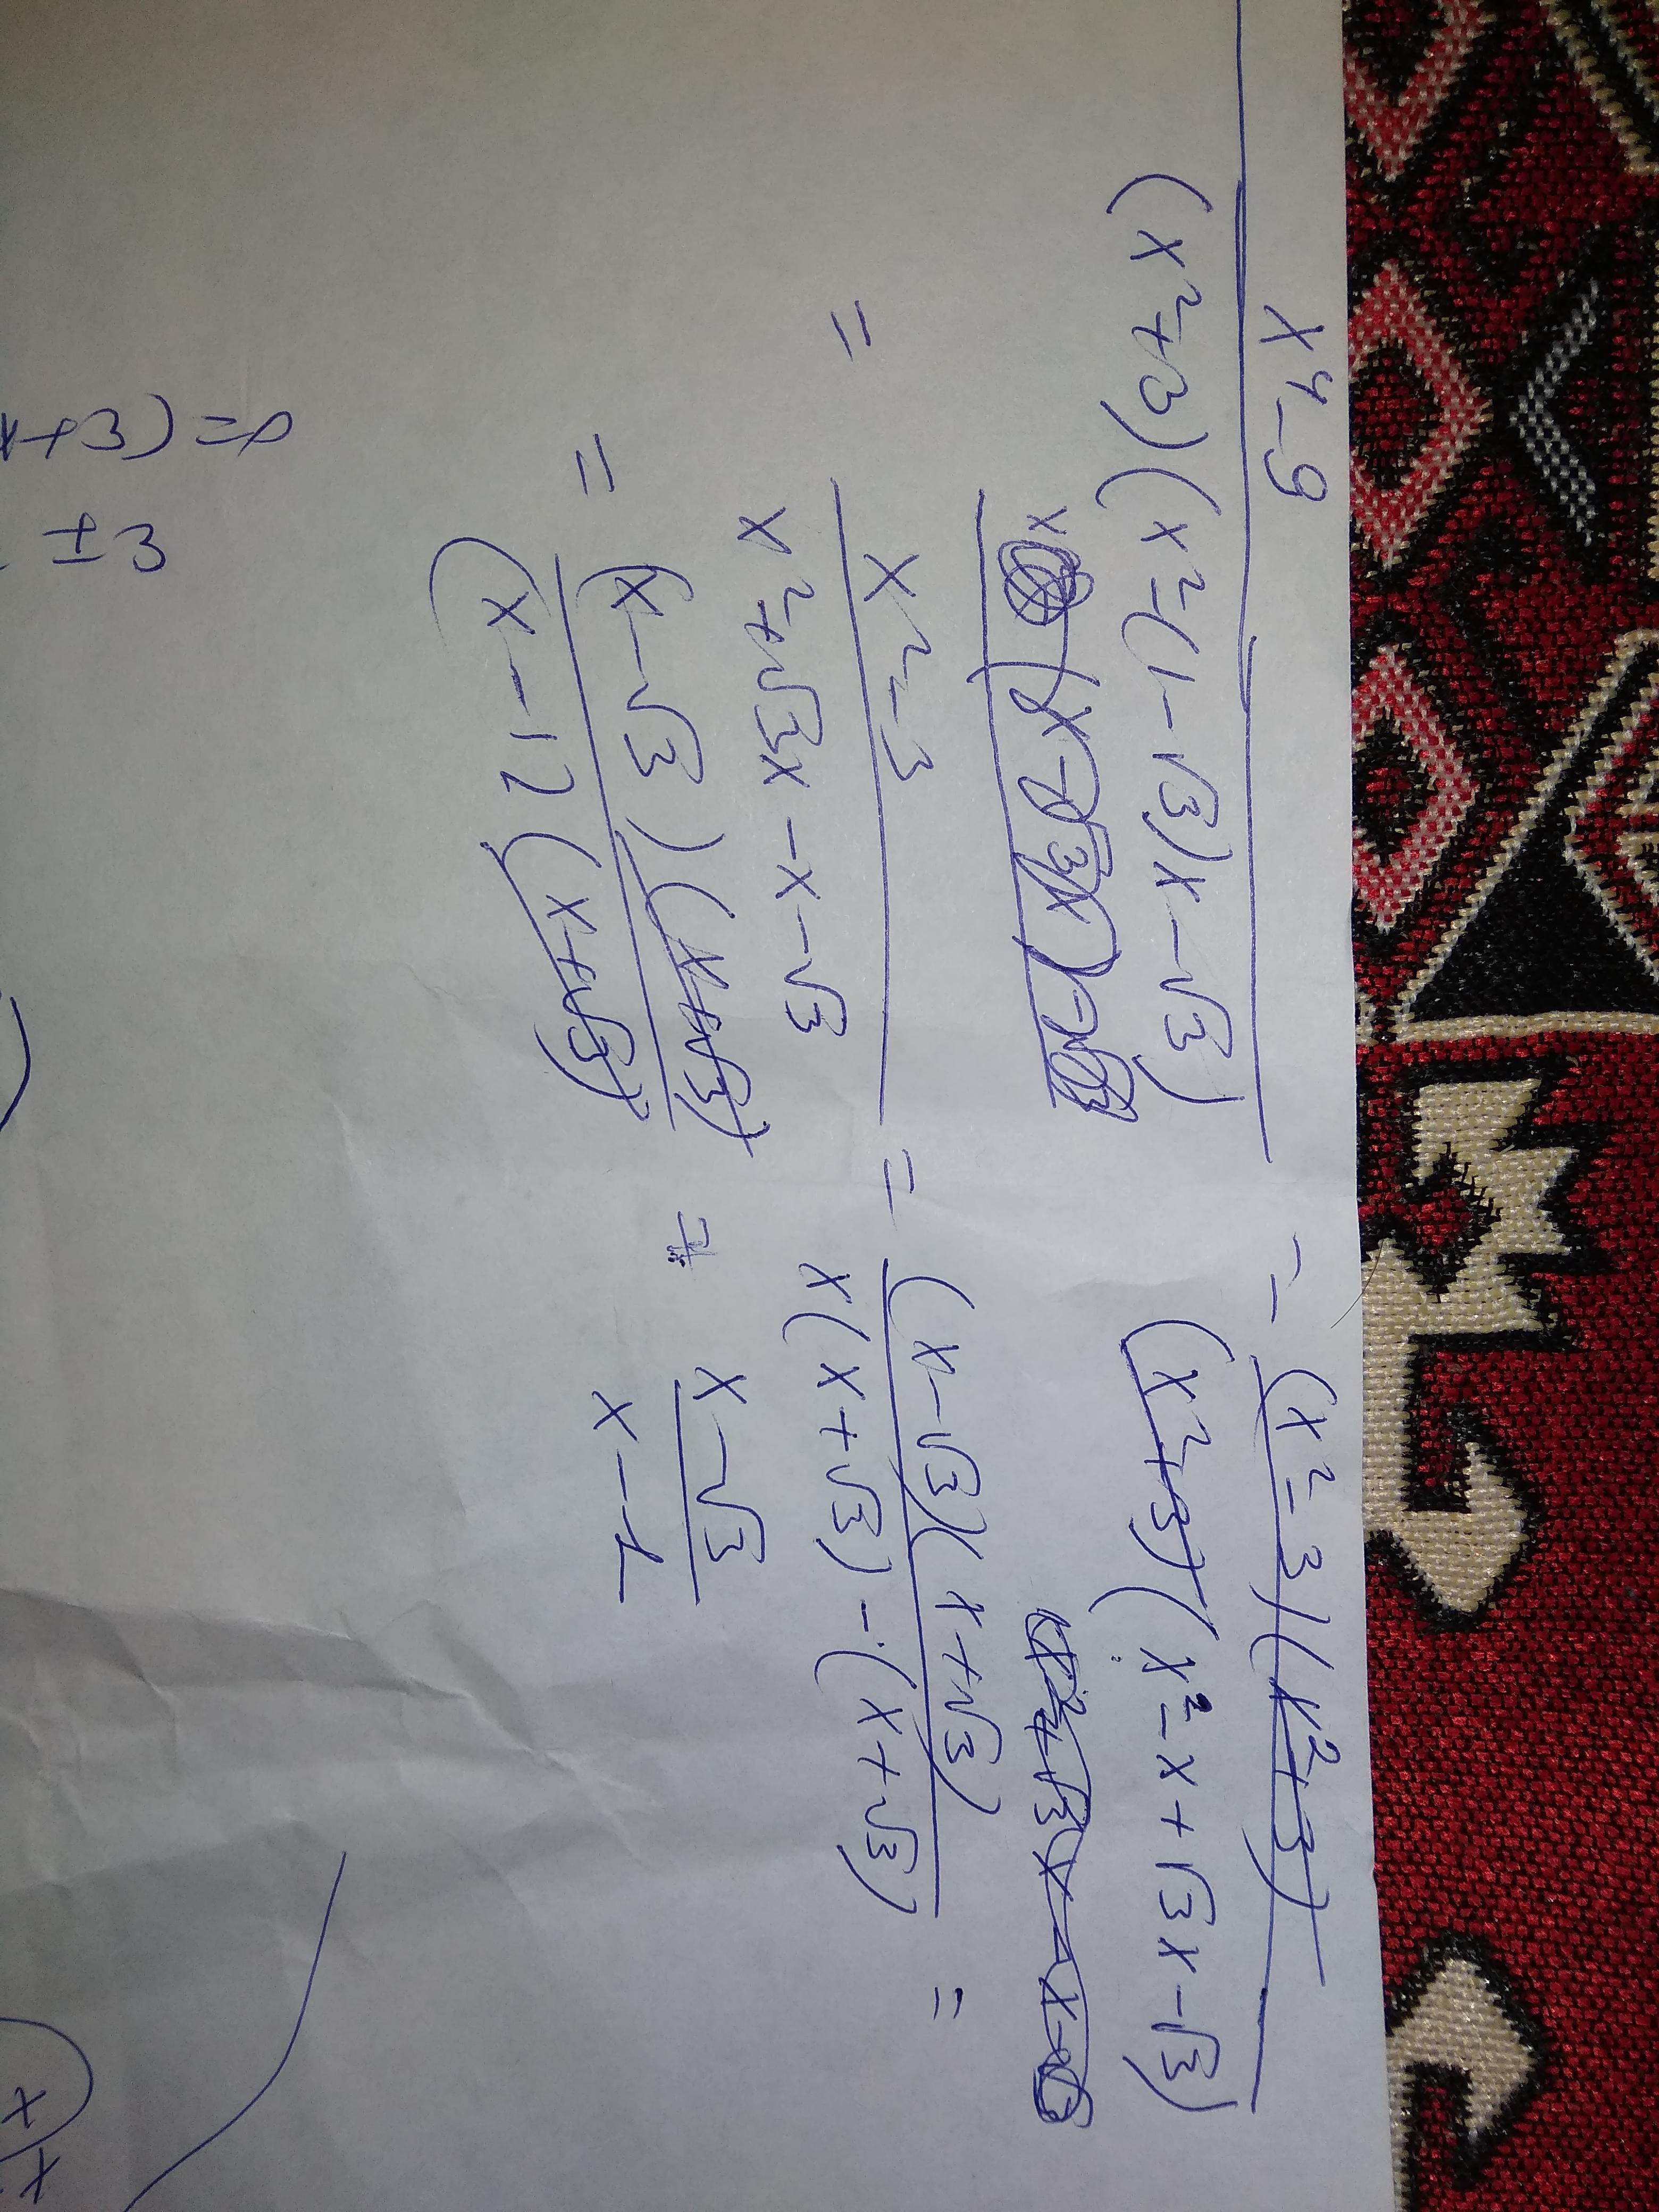 x⁴-9 / (x²+3)(x²-(1-√3)x-√3) = (x²-3)(x²+3) / (x²+3)(x²-x+√3x-√3)
= x²-3 / x²+√3x-x-√3 = (x-√3)(x+√3) / x(x+√3)-(x+√3) =
= (x-√3)(x+√3) / (x-1)(x+√3) = x-√3 / x-1